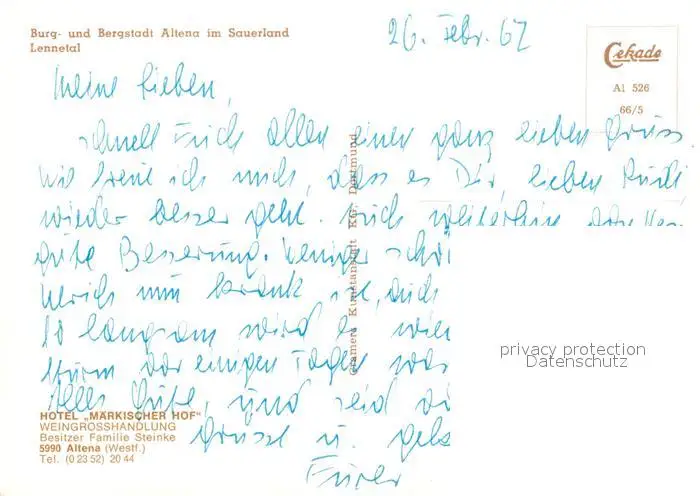 Burg- und Bergstadt Altena im Sauerland
Lennetal
26. Febr. 67
Cekade
Al 526
66/5
Meine Lieben,
schnell Euch allen einen ganz lieben Gruss.
Wie freut ich mich, dass es Dir, lieber Rudi
wieder besser geht. Euch weiterhin
gute Besserung. Weniger
Ulrich nun krank ist, auch
So langsam wird es
Sturm vor einigen Tagen
Alles Gute, und seid
Grüsse u.
Cramers Kunstanstalt KG. Dortmund
privacy protection
Datenschutz
HOTEL „MÄRKISCHER HOF"
WEINGROSSHANDLUNG
Besitzer Familie Steinke
5990 Altena (Westf.)
Tel. (0 23 52) 20 44